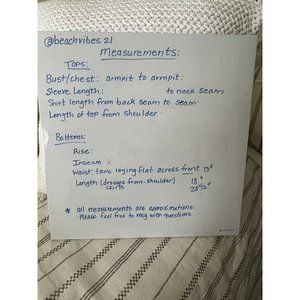 @beachvibes21
Measurements:
Tops:
Bust/chest: armpit to armpit:
Sleeve Length: to neck seam
Shirt length from back seam to seam
Length of top from shoulder
Bottoms:
Rise:
Inseam:
Waist: tape laying flat across front 13"
Length (dresses from shoulder) 18"
skirts 28 1/2"
* all measurements are approximations
Please feel free to msg with questions